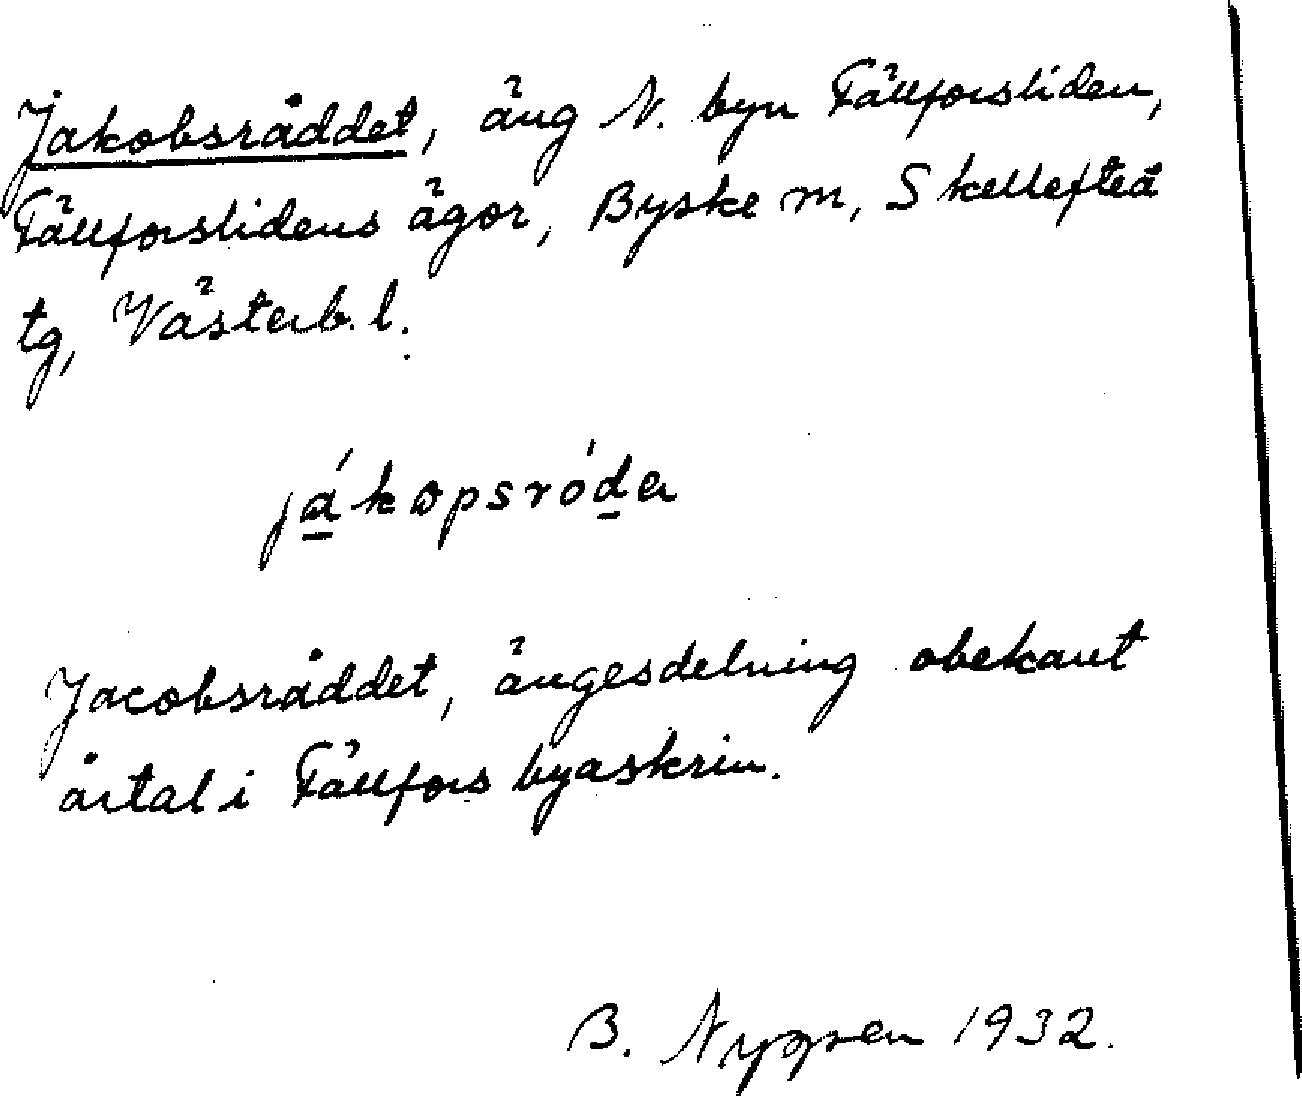 Jakobsråddet, äng N. byn Fällforsliden,
Fällforslidens ägor, Byske m, Skellefteå
tg, Västerb. l.
já̱kopsróḏa
Jacobsråddet, ängesdelning obekant
årtal i Fällfors byaskrin.
B. Nygren 1932.